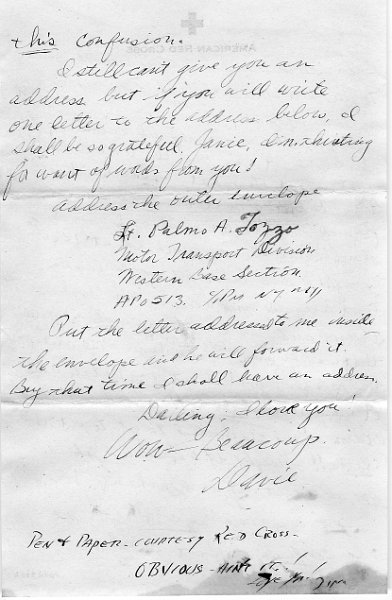 & this confusion.
I still cant give you an
address but if you will write
one letter to the address below, I
shall be so grateful, Janie, I'm thirsting
for want of words from you!
Address the outer envelope
Lt. Palmo A. Tozzo
Motor Transport Division
Western Base Section
APO 513. % PM NY NY
Put the letter addressed to me inside
the envelope and he will forward it.
By that time I shall have an address.
Darling: I love you!
Wow - Beaucoup.
Davie
PEN & PAPER - COURTESY RED CROSS -
OBVIOUS - AINT IT!
Love Ya!
AMERICAN RED CROSS